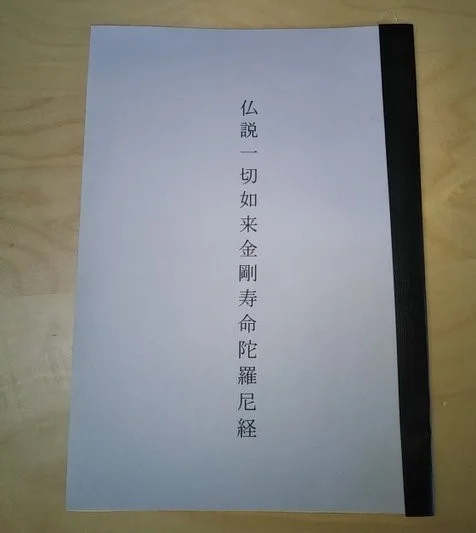 仏説一切如来金剛寿命陀羅尼経